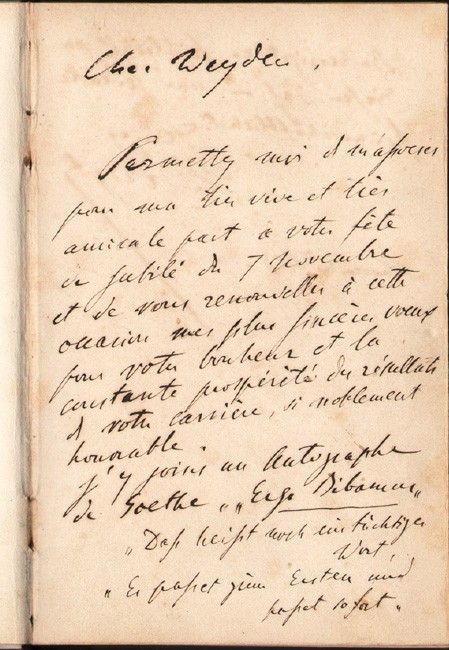 Cher Weyden,
Permettez moi de m'associer
pour ma très vive et très
amicale part à votre fête
de Jubilé du 7 Novembre
et de vous renouveller à cette
occasion mes plus sincères voeux
pour votre bonheur et la
constante prospérité des résultats
de votre carrière, si noblement
honorable.
J'y joins un Autographe
de Goethe „Ergo Bibamus„
„Das heißt noch ein tüchtiges
Wort,
„Es passet zum Ersten und
passet sofort„